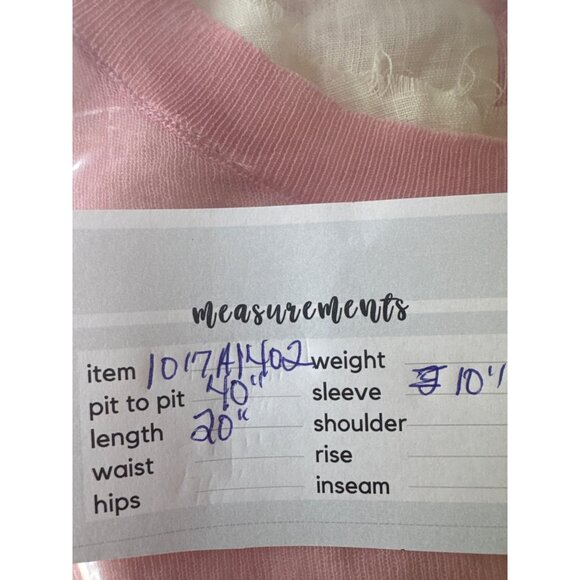 measurements
item 1017A1402 weight
pit to pit 40" sleeve 10"
length 20" shoulder
waist rise
hips inseam